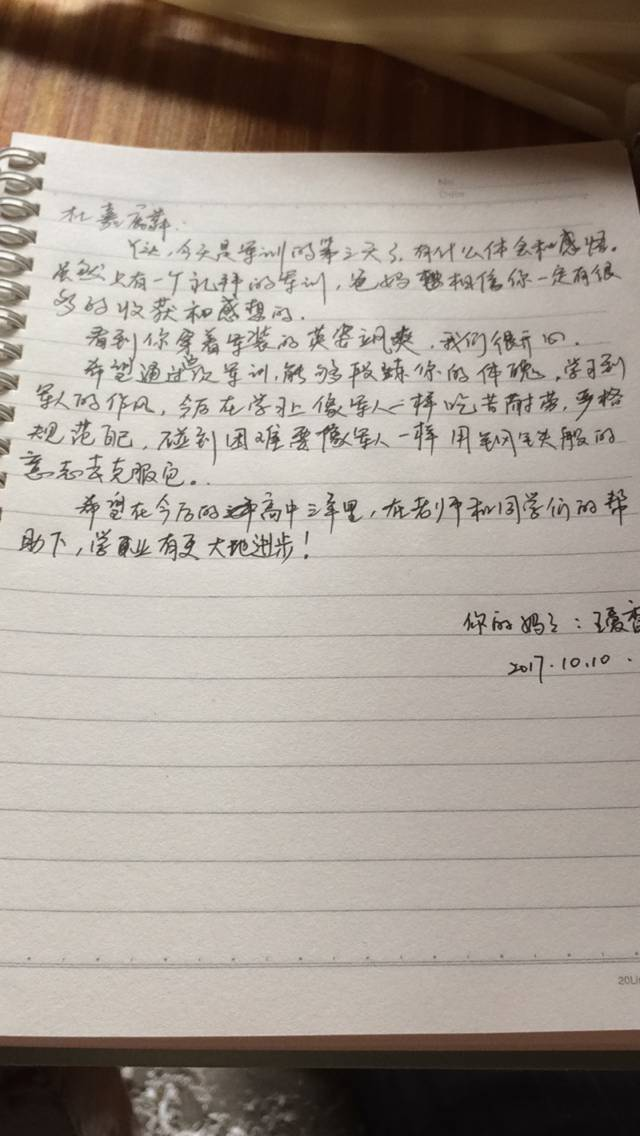 No.
Date
杜嘉
丫头,今天是军训的第三天了,有什么体会和感悟。
虽然上有一个礼拜的军训,爸妈相信你一定有很
多的收获和感想的.
看到你穿着军装的英姿飒爽,我们很开心.
希望通过这次军训,能够段练你的体魄,学习到
军人的作风,今后在学习上像军人一样吃苦耐劳,严格
规范自己,碰到困难要像军人一样用钢铁般的
意志去克服它。
希望在今后的高中三年里,在老师和同学们的帮
助下,学业有更大地进步!
你的妈妈:王爱香
2017.10.10.